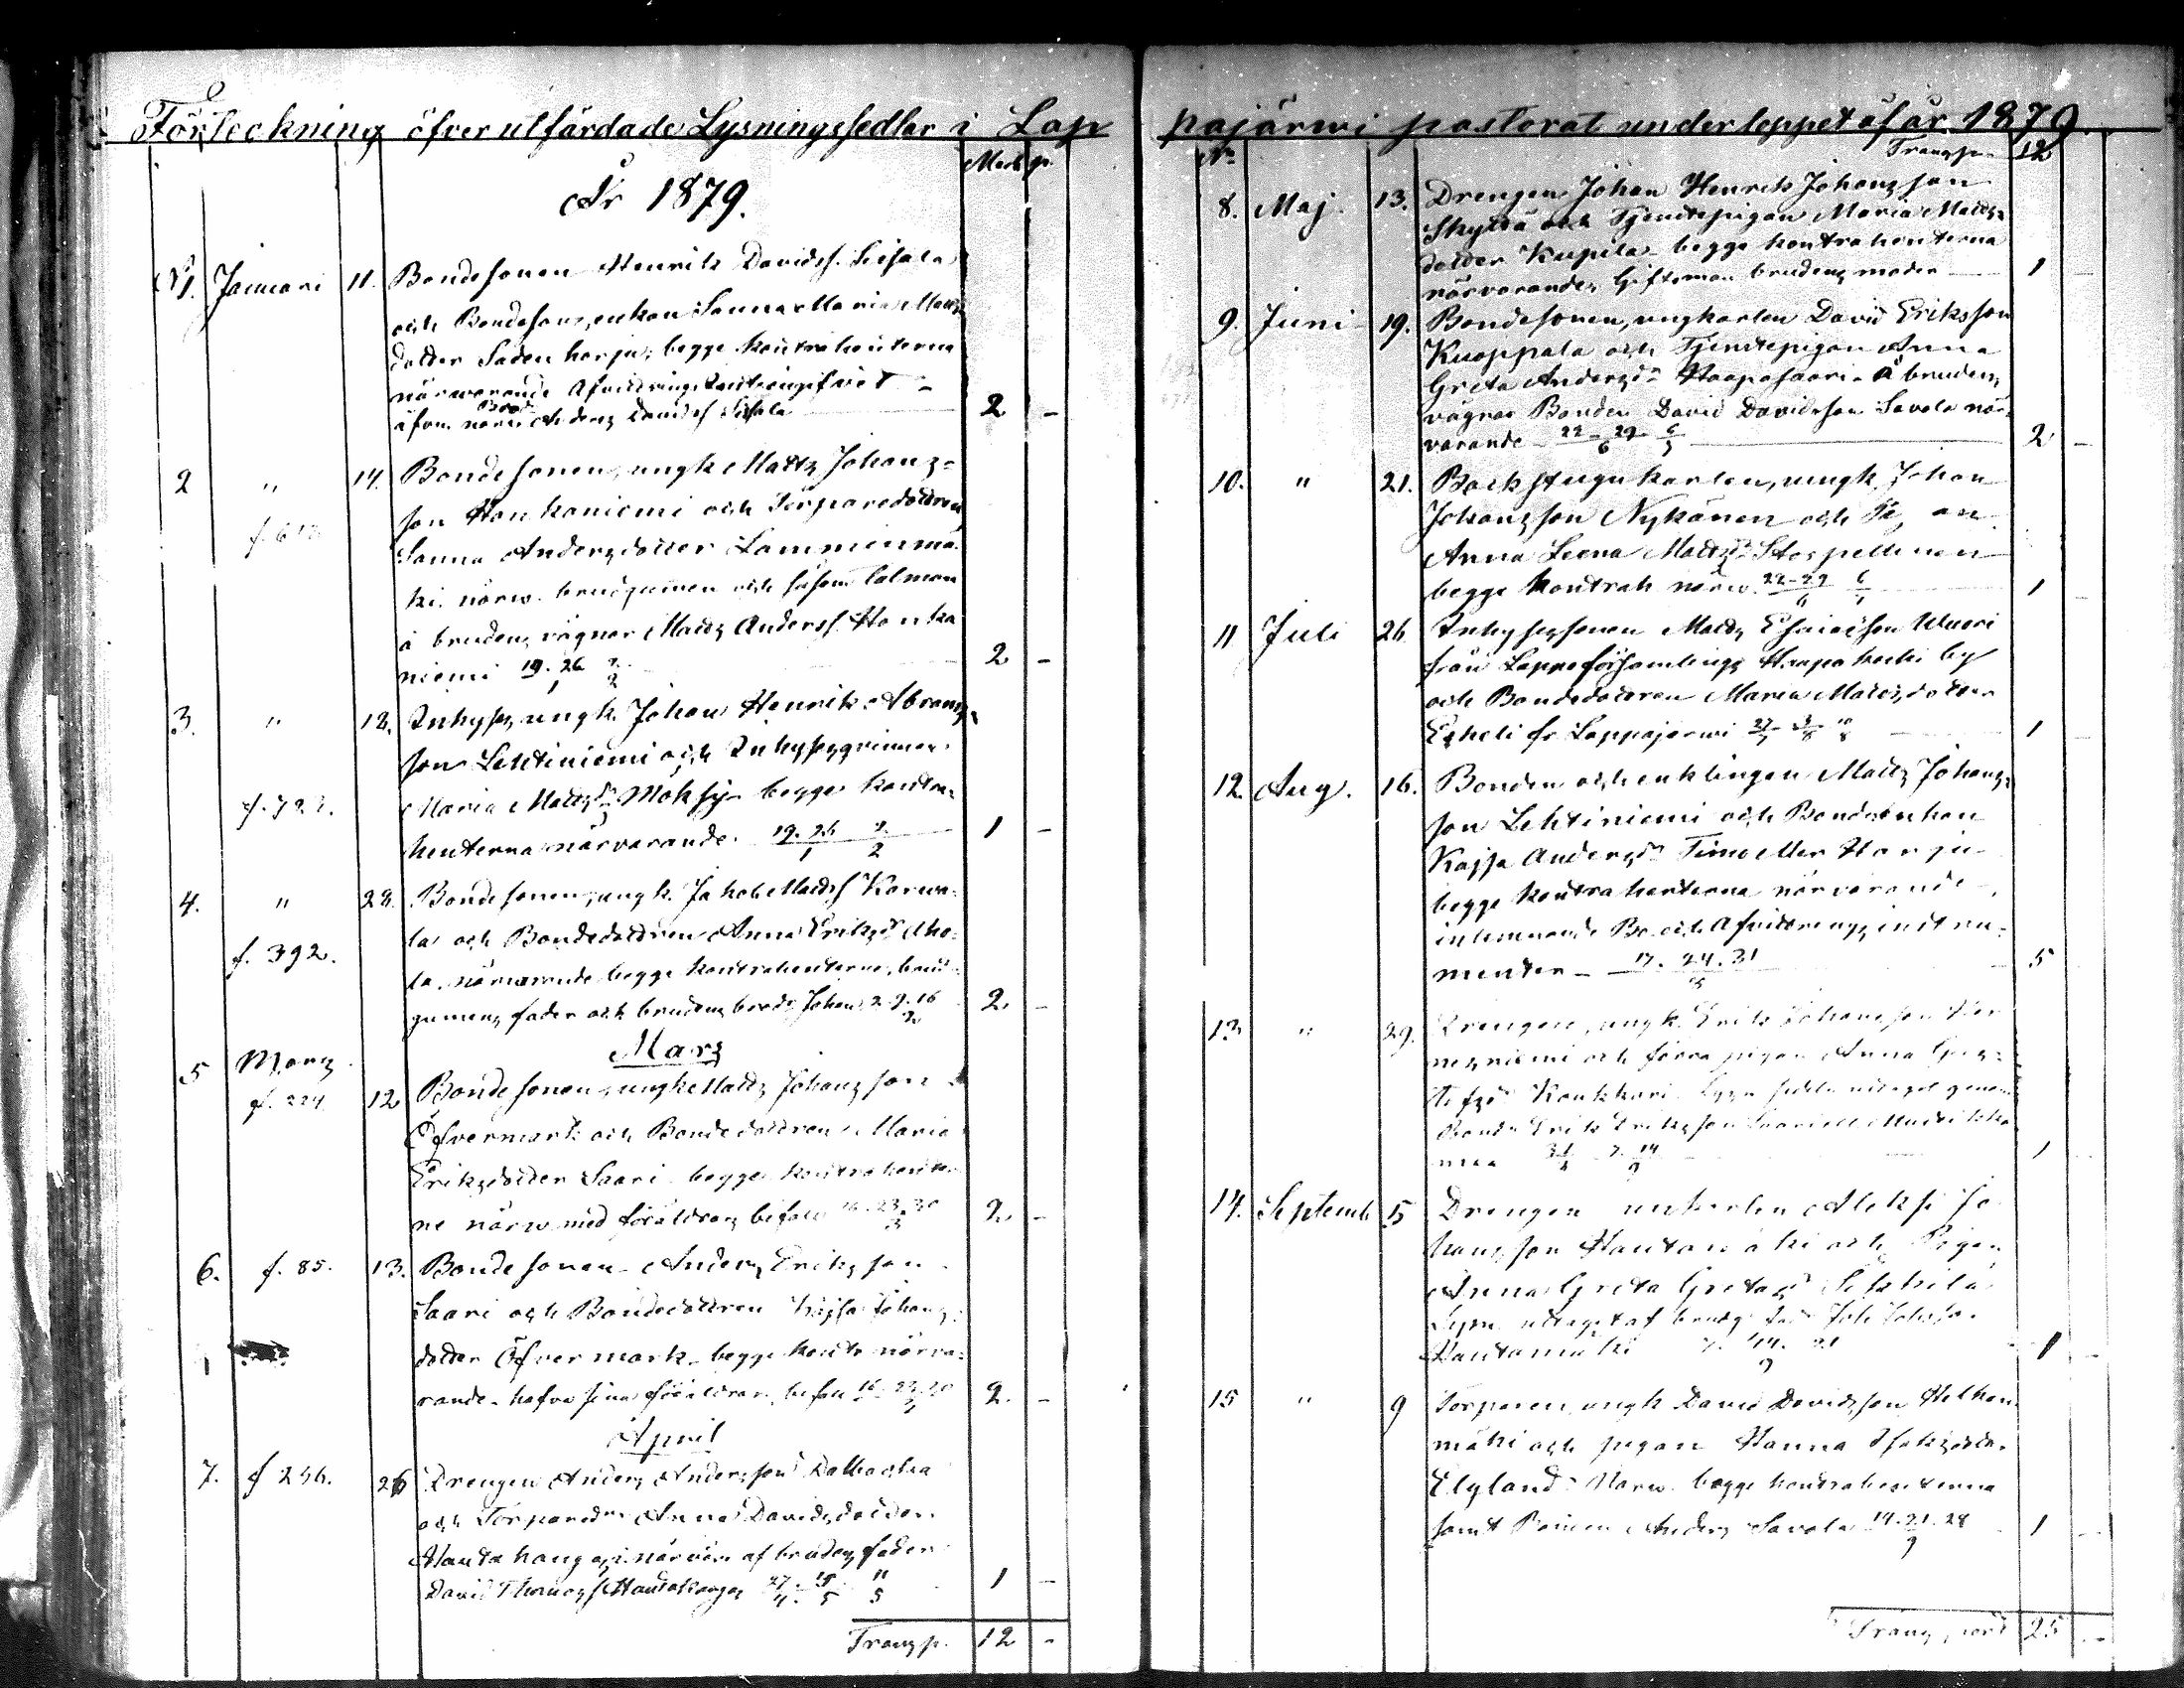 Förteckning öfver utfärdade Lysningssedlar i Lap
Mark p.
År 1879.
N 1. Januari 11. Bondesonen Henrik Davidss. Seisala
och Bondesons enkan Sanna Maria Matts
dotter Sadenharju; begge kontrahenterna
närvarande
Anders Davidss Seisala 2 -
2 " 14. Bondesonen, ungk Matts Johans=
f. 612. son Honkaniemi och Torparedottren
Sanna Andersdotter Lamminmä
ki. närv. brudgumen och såsom talman
å brudens vägnar Matts Anderss. Honka
niemi 19. 26/1 2/2 2 -
3. " 18. Inhyses, ungk. Johan Henrik Abrams
son Lehtiniemi och Inhysesqvinnan
f. 722. Maria Mattsdr Möksy begge kontra=
henterna närvarande. 19. 26/1 2/2 1 -
4. " 28. Bondesonen, ungk. Jakob Matss Karva=
f. 392. la och Bondedottren Anna Eriksdr Aho=
la. närvarande begge kontrahenterna, brud
gumens fader och brudens broder Johan 2. 9. 16/2 2. -
Mars
5 Mars
f. 224. 12 Bondesonen, ungk Matts Johansson
Öfvermark och Bondedottren Maria
Eriksdotter Saari begge kontrahenter
ne närv. med föräldrars bifall 16. 23. 30/3 2 -
6. f. 85. 13. Bondesonen Anders Eriksson
Saari och Bondedottren Kajsa Johans
dotter Öfvermark begge kontr närva=
rande. hafva sina föräldrars bifall 16. 23. 30/3 2. -
April
7. f 256. 26 Drengen Anders Andersson Dalbacka
och Torparedr Anna Davidsdotter
Hautakangas i närvaro af brudens fader
David Thomass Hautakangas 27/4. 4/5 11/5 1 -
Transp. 12 -
pajärwi pastorat under loppet af år 1879
No Transp. 12
8. Maj. 13. Drengen Johan Henrik Johansson
Skyttä och Tjenstepigan Maria Matts=
dotter Kupila begge kontrahenterna
närvarande, Giftoman brudens moder 1 -
9. Juni 19. Bondesonen, ungkarlen David Eriksson
Kuoppala och Tjenstepigan Anna
Greta Andersdr Haapasaari. Å brudens
vägnar Bonden David Davidsson Savola när=
varande 22 - 29/6 6/7 2 -
10. " 21. Backstugukarlen, ungk. Johan
Johansson Nykänen och
Anna Leena Mattsdr
begge kontrah närv. 22 - 29/6 6/7 1 -
11 Juli 26. Inhysessonen Matts Esaiasson Wuori
från Lappo församlings Haapakoski by
och Bondedottren Maria Mattsdotter
Eskeli fr Lappajärvi 27/7 3/8 10/8 1 -
12. Aug. 16. Bonden och enklingen Matts Johans
son Lehtiniemi och Bondeenkan
Kajsa Andersdr Timo Harju
begge kontrahenterna närvarande
inlemnande Bo och Afvittrings instru=
menter 17. 24. 31/8 5
13. " 29. Drengen, ungk. Erik Johansson
niemi och förra pigan Anna
Kaukkari
Bond. Erik Eriksson
31/8 7. 14/9 1
14. Septemb 5 Drengen unkarlen Aleksi Jo
hansson Hautamäki och Pigan
Anna Greta Gretasdr
Lysn. uttaget af brudg. fad. Joh Johsson
Hautamäki 7. 14. 21/9 1 -
15 " 9 Torparen ungk David Davidsson
mäki och pigan Sanna
Elglund Närv. begge kontrahenterna
samt Bonden Anders Savola 14. 21. 28/9 1 -
Transport 25 -